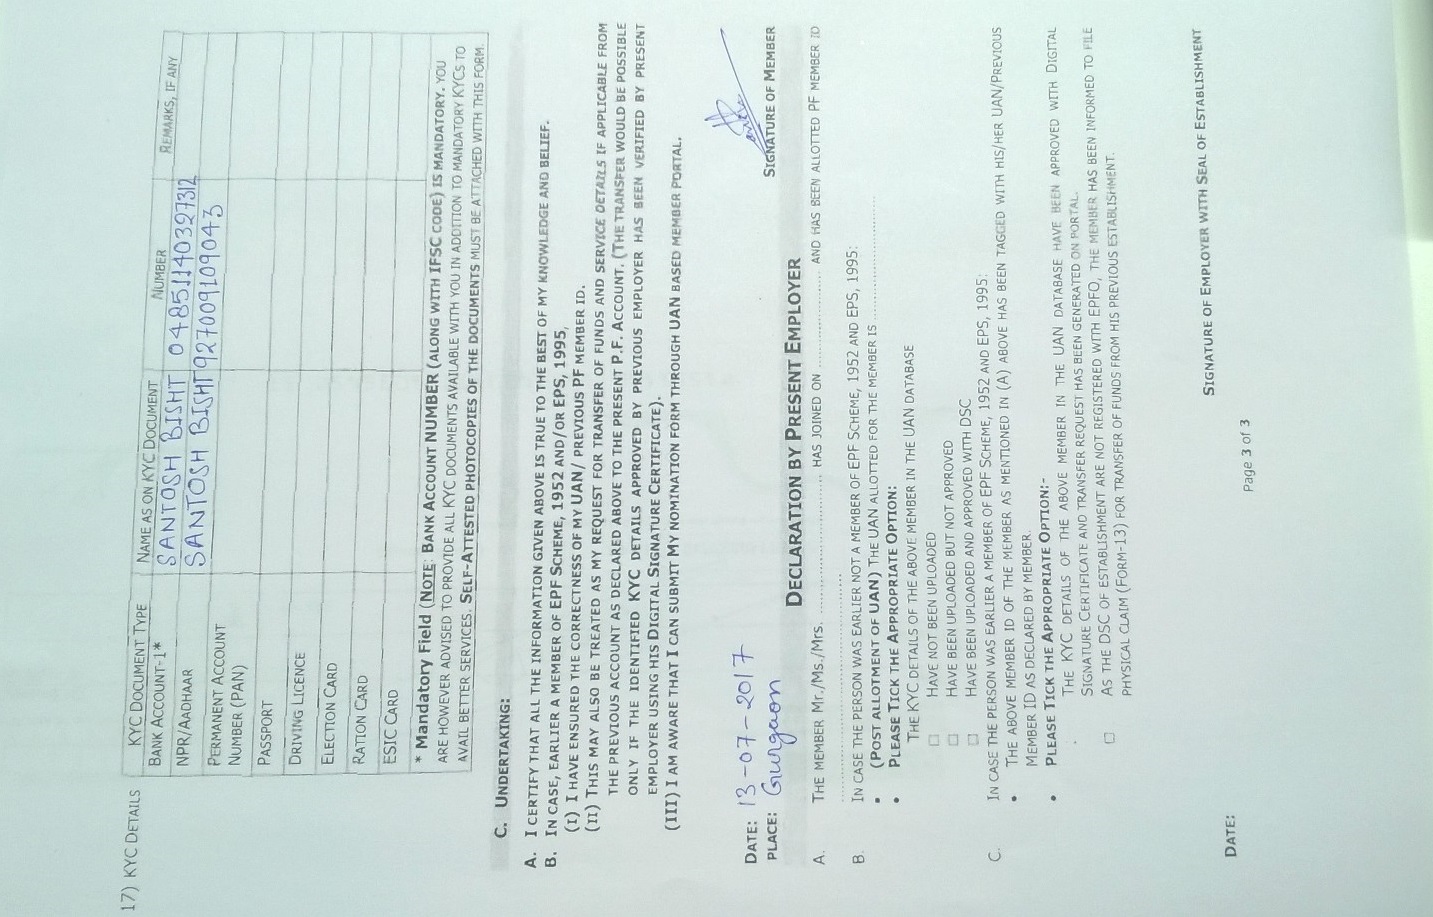 17) KYC DETAILS
KYC DOCUMENT TYPE NAME AS ON KYC DOCUMENT NUMBER REMARKS, IF ANY
BANK ACCOUNT-1* SANTOSH BISHT 048511403 27312
NPR/AADHAAR SANTOSH BISHT 927009109043
PERMANENT ACCOUNT
NUMBER (PAN)
PASSPORT
DRIVING LICENCE
ELECTION CARD
RATION CARD
ESIC CARD
* Mandatory Field (NOTE: BANK ACCOUNT NUMBER (ALONG WITH IFSC CODE) IS MANDATORY. YOU
ARE HOWEVER ADVISED TO PROVIDE ALL KYC DOCUMENTS AVAILABLE WITH YOU IN ADDITION TO MANDATORY KYCS TO
AVAIL BETTER SERVICES. SELF-ATTESTED PHOTOCOPIES OF THE DOCUMENTS MUST BE ATTACHED WITH THIS FORM.
C. UNDERTAKING:
A. I CERTIFY THAT ALL THE INFORMATION GIVEN ABOVE IS TRUE TO THE BEST OF MY KNOWLEDGE AND BELIEF.
B. IN CASE, EARLIER A MEMBER OF EPF SCHEME, 1952 AND/OR EPS, 1995,
(I) I HAVE ENSURED THE CORRECTNESS OF MY UAN/ PREVIOUS PF MEMBER ID.
(II) THIS MAY ALSO BE TREATED AS MY REQUEST FOR TRANSFER OF FUNDS AND SERVICE DETAILS IF APPLICABLE FROM
THE PREVIOUS ACCOUNT AS DECLARED ABOVE TO THE PRESENT P.F. ACCOUNT. (THE TRANSFER WOULD BE POSSIBLE
ONLY IF THE IDENTIFIED KYC DETAILS APPROVED BY PREVIOUS EMPLOYER HAS BEEN VERIFIED BY PRESENT
EMPLOYER USING HIS DIGITAL SIGNATURE CERTIFICATE).
(III) I AM AWARE THAT I CAN SUBMIT MY NOMINATION FORM THROUGH UAN BASED MEMBER PORTAL.
DATE: 13-07-2017
PLACE: Gurgaon SIGNATURE OF MEMBER
DECLARATION BY PRESENT EMPLOYER
A. THE MEMBER Mr./Ms./Mrs. .................................. HAS JOINED ON ................. AND HAS BEEN ALLOTTED PF MEMBER ID
..........................................
B. IN CASE THE PERSON WAS EARLIER NOT A MEMBER OF EPF SCHEME, 1952 AND EPS, 1995:
• (POST ALLOTMENT OF UAN) THE UAN ALLOTTED FOR THE MEMBER IS .........................
• PLEASE TICK THE APPROPRIATE OPTION:
THE KYC DETAILS OF THE ABOVE MEMBER IN THE UAN DATABASE
☐ HAVE NOT BEEN UPLOADED
☐ HAVE BEEN UPLOADED BUT NOT APPROVED
☐ HAVE BEEN UPLOADED AND APPROVED WITH DSC
C. IN CASE THE PERSON WAS EARLIER A MEMBER OF EPF SCHEME, 1952 AND EPS, 1995:
• THE ABOVE MEMBER ID OF THE MEMBER AS MENTIONED IN (A) ABOVE HAS BEEN TAGGED WITH HIS/HER UAN/PREVIOUS
MEMBER ID AS DECLARED BY MEMBER.
• PLEASE TICK THE APPROPRIATE OPTION:-
THE KYC DETAILS OF THE ABOVE MEMBER IN THE UAN DATABASE HAVE BEEN APPROVED WITH DIGITAL
SIGNATURE CERTIFICATE AND TRANSFER REQUEST HAS BEEN GENERATED ON PORTAL.
☐ AS THE DSC OF ESTABLISHMENT ARE NOT REGISTERED WITH EPFO, THE MEMBER HAS BEEN INFORMED TO FILE
PHYSICAL CLAIM (FORM-13) FOR TRANSFER OF FUNDS FROM HIS PREVIOUS ESTABLISHMENT.
DATE: SIGNATURE OF EMPLOYER WITH SEAL OF ESTABLISHMENT
Page 3 of 3